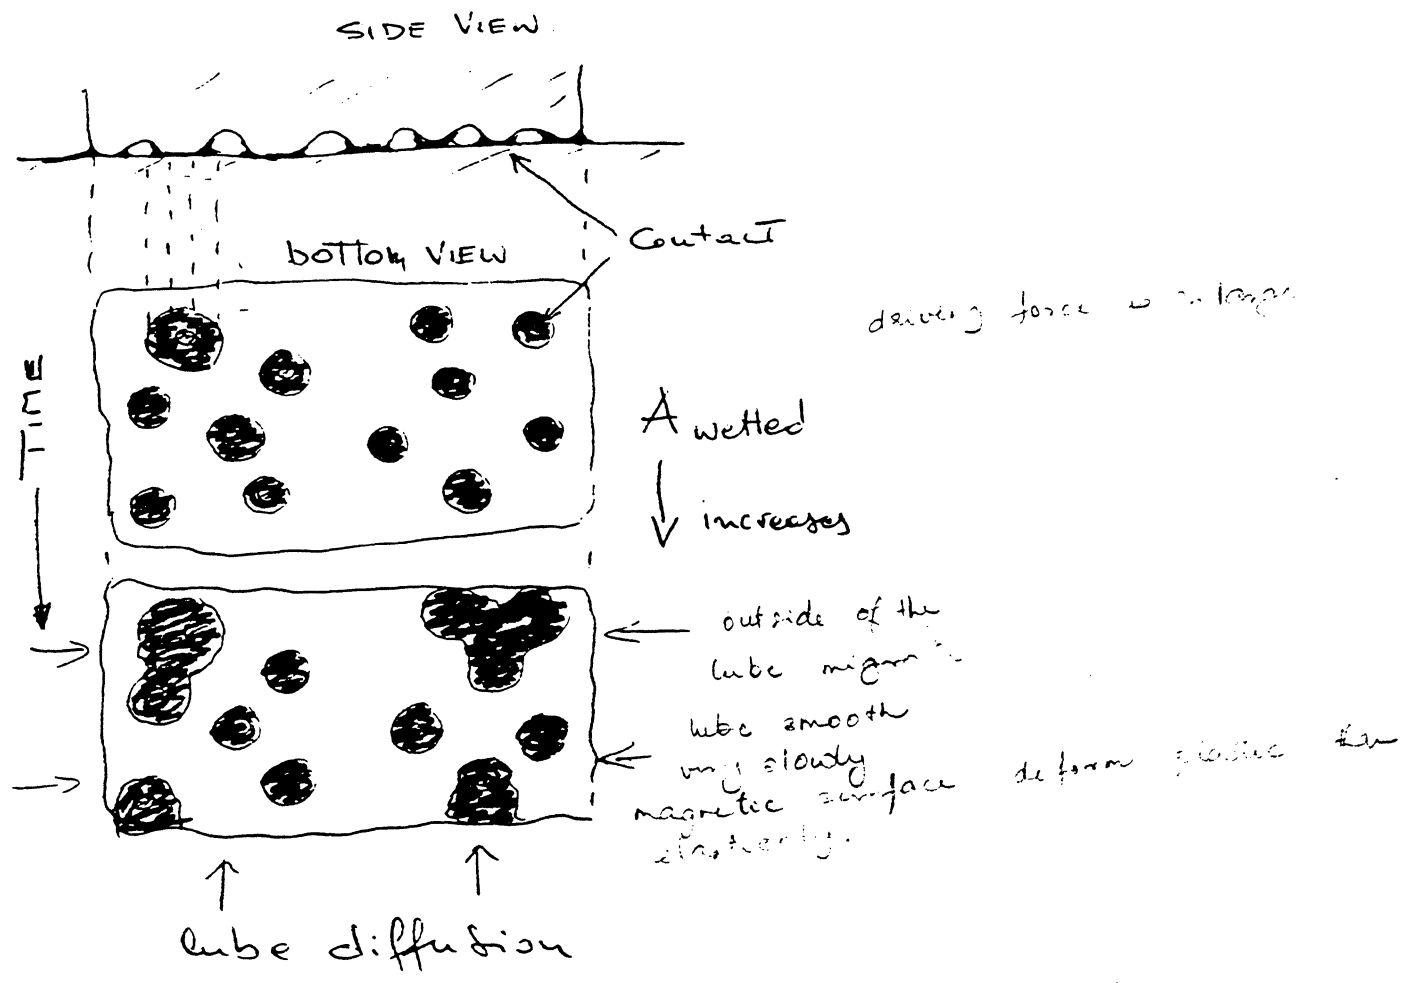 SIDE VIEW
Contact
bottom VIEW
driving force
TIME
A wetted
increases
outside of the
lube
lube smooth
very slowly
magnetic surface deform
elastically.
lube diffusion